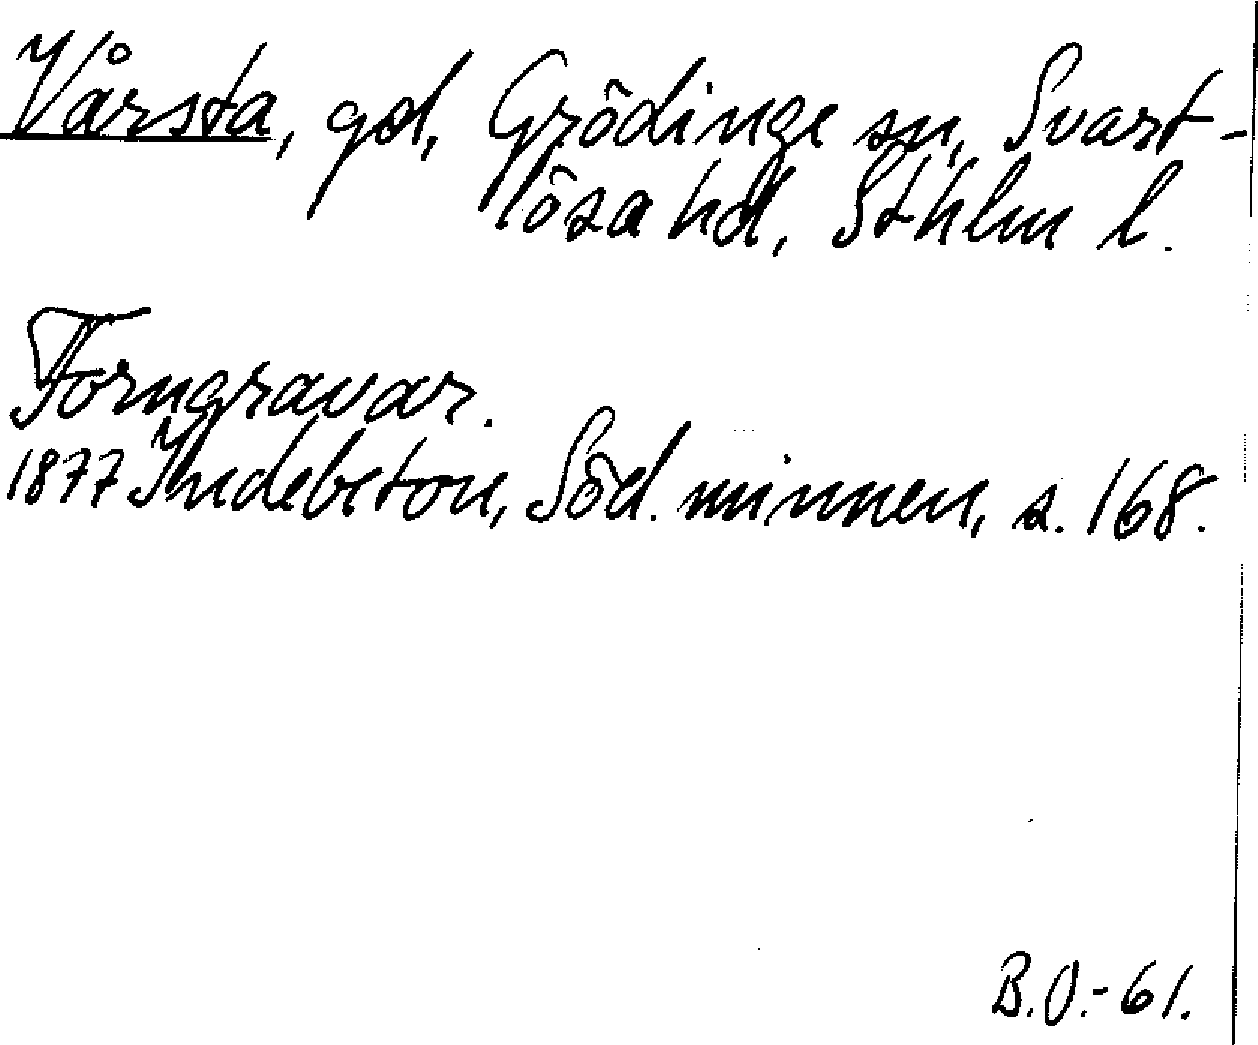 Vårsta, gd, Grödinge sn, Svart-
lösa hd, Sthlm l.
Forngravar.
1877 Indebetou, Söd. minnen, s. 168.
B.O.-61.